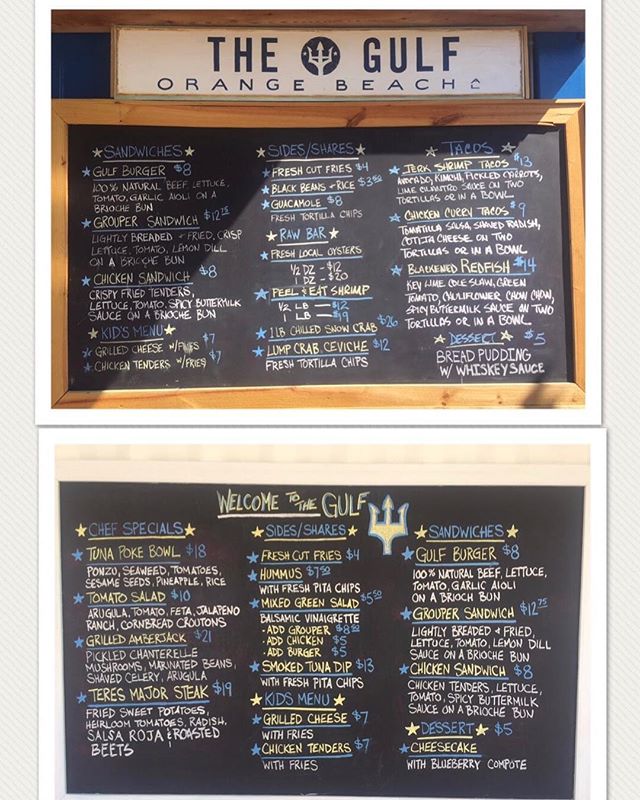 THE GULF
ORANGE BEACH
SANDWICHES
GULF BURGER $8
100% NATURAL BEEF, LETTUCE,
TOMATO, GARLIC AIOLI ON A
BRIOCHE BUN
GROUPER SANDWICH $12.75
LIGHTLY BREADED + FRIED, CRISP
LETTUCE, TOMATO, LEMON DILL
ON A BRIOCHE BUN
CHICKEN SANDWICH $8
CRISPY FRIED TENDERS,
LETTUCE, TOMATO, SPICY BUTTERMILK
SAUCE ON A BRIOCHE BUN
KID'S MENU
GRILLED CHEESE W/FRIES $7
CHICKEN TENDERS W/FRIES $7
SIDES/SHARES
FRESH CUT FRIES $4
BLACK BEANS + RICE
GUACAMOLE $8
FRESH TORTILLA CHIPS
RAW BAR
FRESH LOCAL OYSTERS
1/2 DZ - $12
1 DZ - $20
PEEL & EAT SHRIMP
1/2 LB — $12
1 LB — $19
1LB CHILLED SNOW CRAB $26
LUMP CRAB CEVICHE $12
FRESH TORTILLA CHIPS
TACOS
JERK SHRIMP TACOS $13
AVOCADO, KIMCHI, PICKLED CARROTS,
LIME CILANTRO SAUCE ON TWO
TORTILLAS OR IN A BOWL
CHICKEN CURRY TACOS $9
TOMATILLA SALSA, SHAVED RADISH,
COTIJA CHEESE ON TWO
TORTILLAS OR IN A BOWL
BLACKENED REDFISH $14
KEY LIME COLE SLAW, GREEN
TOMATO, CAULIFLOWER CHOW CHOW,
SPICY BUTTERMILK SAUCE ON TWO
TORTILLAS OR IN A BOWL
DESSERT $5
BREAD PUDDING
W/ WHISKEY SAUCE
WELCOME TO THE GULF
CHEF SPECIALS
TUNA POKE BOWL $18
PONZU, SEAWEED, TOMATOES,
SESAME SEEDS, PINEAPPLE, RICE
TOMATO SALAD $10
ARUGULA, TOMATO, FETA, JALAPENO
RANCH, CORNBREAD CROUTONS
GRILLED AMBERJACK $21
PICKLED CHANTERELLE
MUSHROOMS, MARINATED BEANS,
SHAVED CELERY, ARUGULA
TERES MAJOR STEAK $19
FRIED SWEET POTATOES,
HEIRLOOM TOMATOES, RADISH,
SALSA ROJA & ROASTED
BEETS
SIDES/SHARES
FRESH CUT FRIES $4
HUMMUS $7.50
WITH FRESH PITA CHIPS
MIXED GREEN SALAD $5.50
BALSAMIC VINAIGRETTE
- ADD GROUPER
- ADD CHICKEN $5
- ADD BURGER $5
SMOKED TUNA DIP $13
WITH FRESH PITA CHIPS
KIDS MENU
GRILLED CHEESE $7
WITH FRIES
CHICKEN TENDERS $7
WITH FRIES
SANDWICHES
GULF BURGER $8
100% NATURAL BEEF, LETTUCE,
TOMATO, GARLIC AIOLI
ON A BRIOCH BUN
GROUPER SANDWICH $12.75
LIGHTLY BREADED + FRIED,
LETTUCE, TOMATO, LEMON DILL
SAUCE ON A BRIOCHE BUN
CHICKEN SANDWICH $8
CHICKEN TENDERS, LETTUCE,
TOMATO, SPICY BUTTERMILK
SAUCE ON A BRIOCHE BUN
DESSERT $5
CHEESECAKE
WITH BLUEBERRY COMPOTE